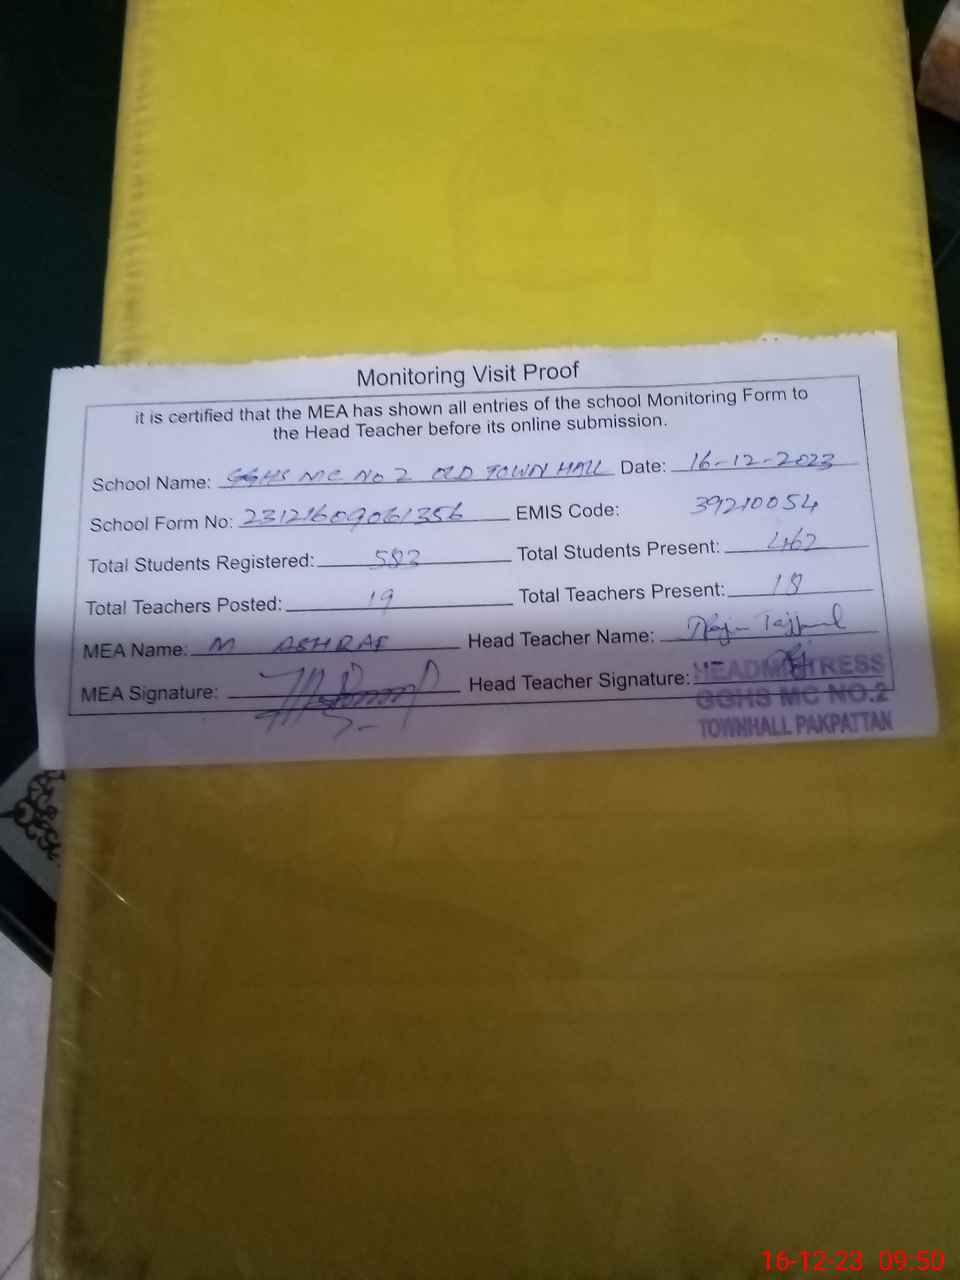 Monitoring Visit Proof
it is certified that the MEA has shown all entries of the school Monitoring Form to
the Head Teacher before its online submission.
School Name: GGHS MC NO 2 OLD TOWN HALL Date: 16-12-2023
School Form No: 23121609061356 EMIS Code: 39210054
Total Students Registered: 582 Total Students Present: 462
Total Teachers Posted: 19 Total Teachers Present: 18
MEA Name: M ASHRAF Head Teacher Name:
MEA Signature: Head Teacher Signature:
HEADMISTRESS
GGHS MC NO.2
TOWNHALL PAKPATTAN
16-12-23 09:50